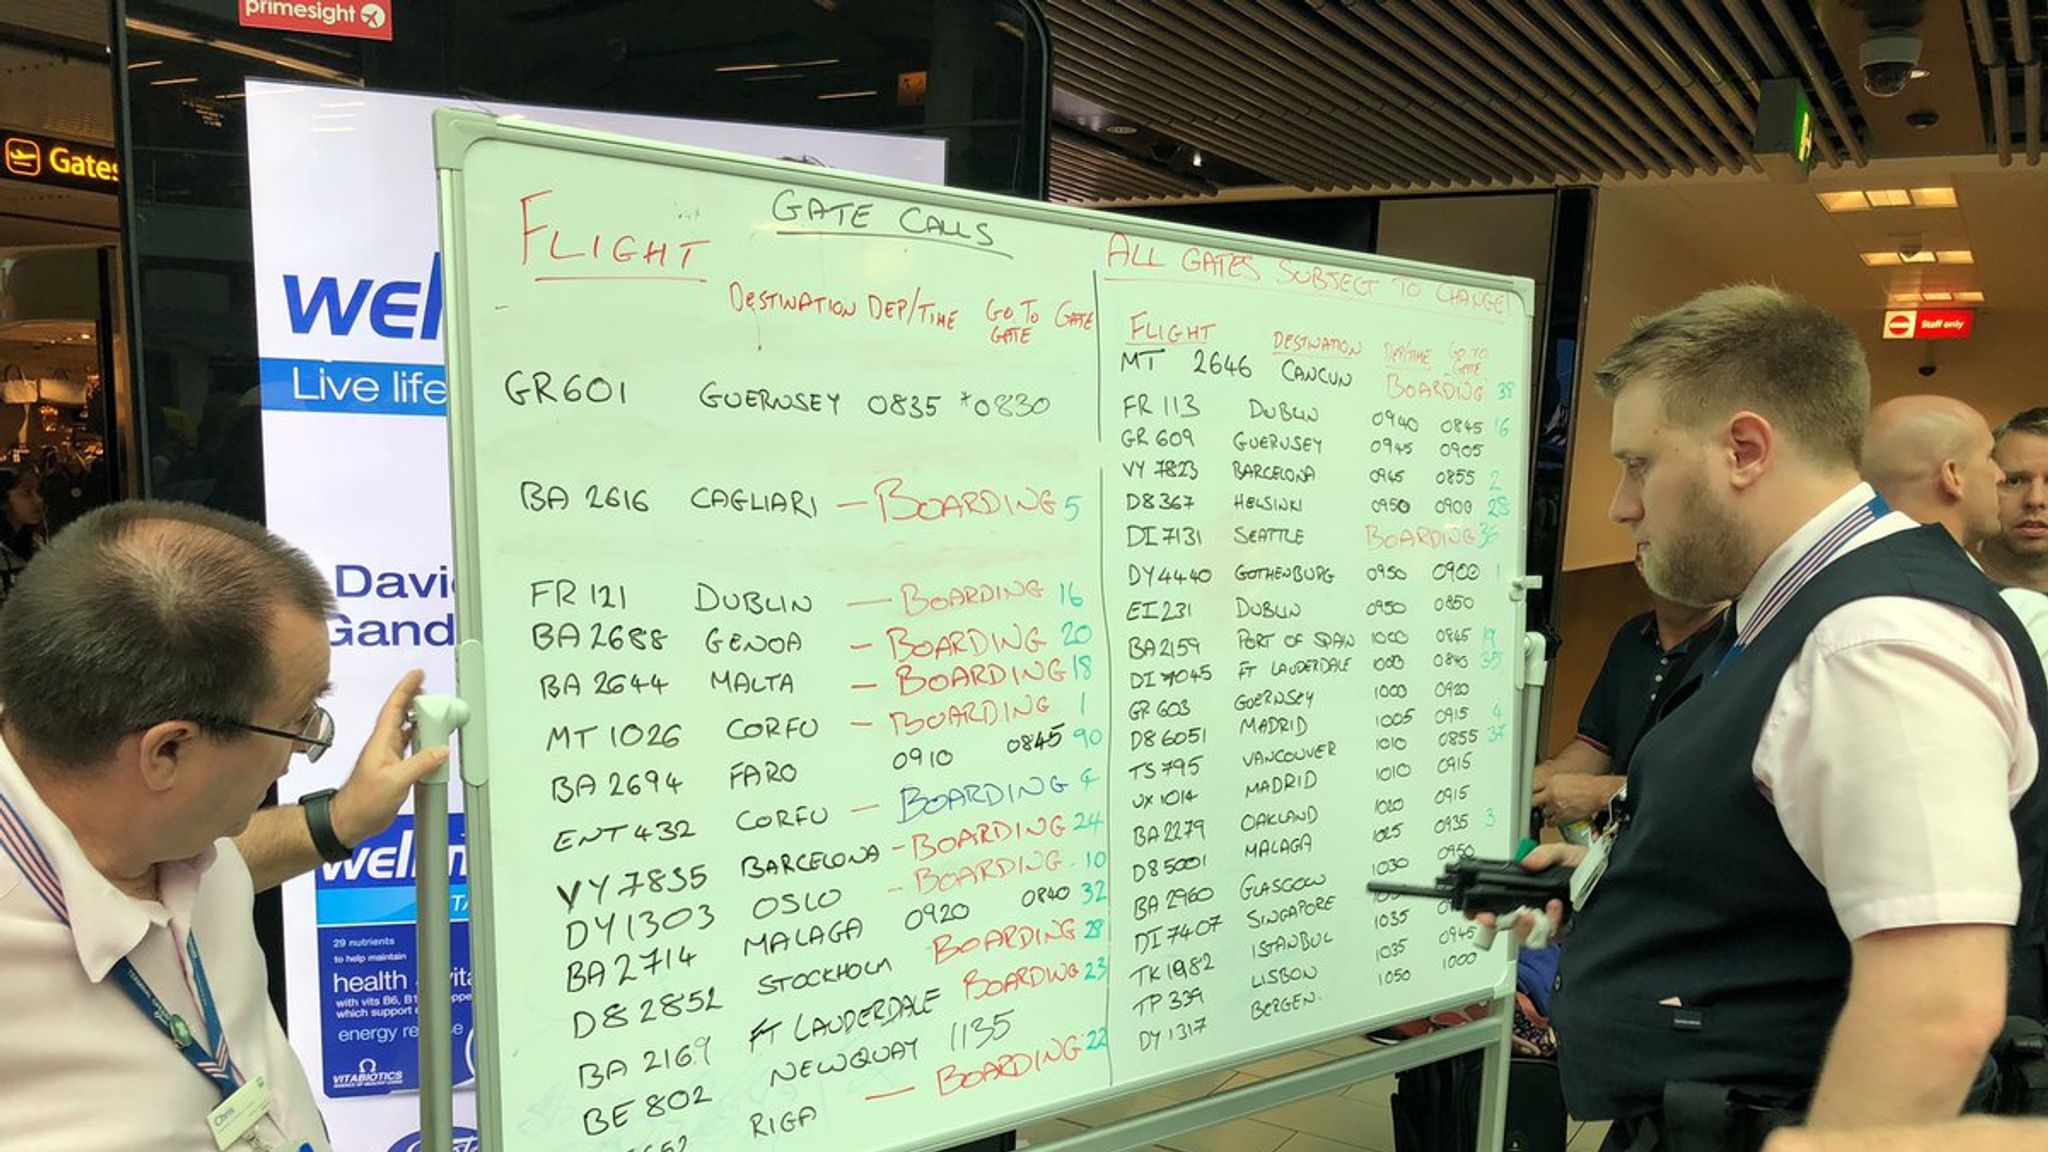 primesight
Gates
Staff only
wel
Live life
Davi
Gand
29 nutrients
to help maintain
health
with vits B6, B1
which support
energy re
VITABIOTICS
Chris
GATE CALLS
FLIGHT
DESTINATION DEP/TIME GO TO GATE
GATE
GR601 GUERNSEY 0835 *0830
BA 2616 CAGLIARI — BOARDING 5
FR 121 DUBLIN — BOARDING 16
BA 2688 GENOA — BOARDING 20
BA 2644 MALTA — BOARDING 18
MT 1026 CORFU — BOARDING 1
BA 2694 FARO 0910 0845 90
ENT 432 CORFU — BOARDING 4
VY 7835 BARCELONA - BOARDING 24
DY 1303 OSLO - BOARDING 10
BA 2714 MALAGA 0920 0840 32
D8 2852 STOCKHOLM BOARDING 28
BA 2169 FT LAUDERDALE BOARDING 23
BE 802 NEWQUAY 1135
RIGA — BOARDING 22
ALL GATES SUBJECT TO CHANGE!
FLIGHT DESTINATION DEP/TIME GO TO
GATE
MT 2646 CANCUN BOARDING 38
FR 113 DUBLIN 0940 0845 16
GR 609 GUERNSEY 0945 0905
VY 7823 BARCELONA 0945 0855 2
D8 367 HELSINKI 0950 0900 28
DI 7131 SEATTLE BOARDING 36
DY 4440 GOTHENBURG 0950 0900 1
EI 231 DUBLIN 0950 0850
BA 2159 PORT OF SPAIN 1000 0845 19
DI 7045 FT LAUDERDALE 1000 0840 35
GR 603 GUERNSEY 1000 0920
D8 6051 MADRID 1005 0915 4
TS 795 VANCOUVER 1010 0855 37
UX 1014 MADRID 1010 0915
BA 2279 OAKLAND 1020 0915
D8 5001 MALAGA 1025 0935 3
BA 2960 GLASGOW 1030 0950
DI 7407 SINGAPORE
TK 1982 ISTANBUL 1035 0945
TP 339 LISBON 1035 1000
DY 1317 BERGEN. 1050